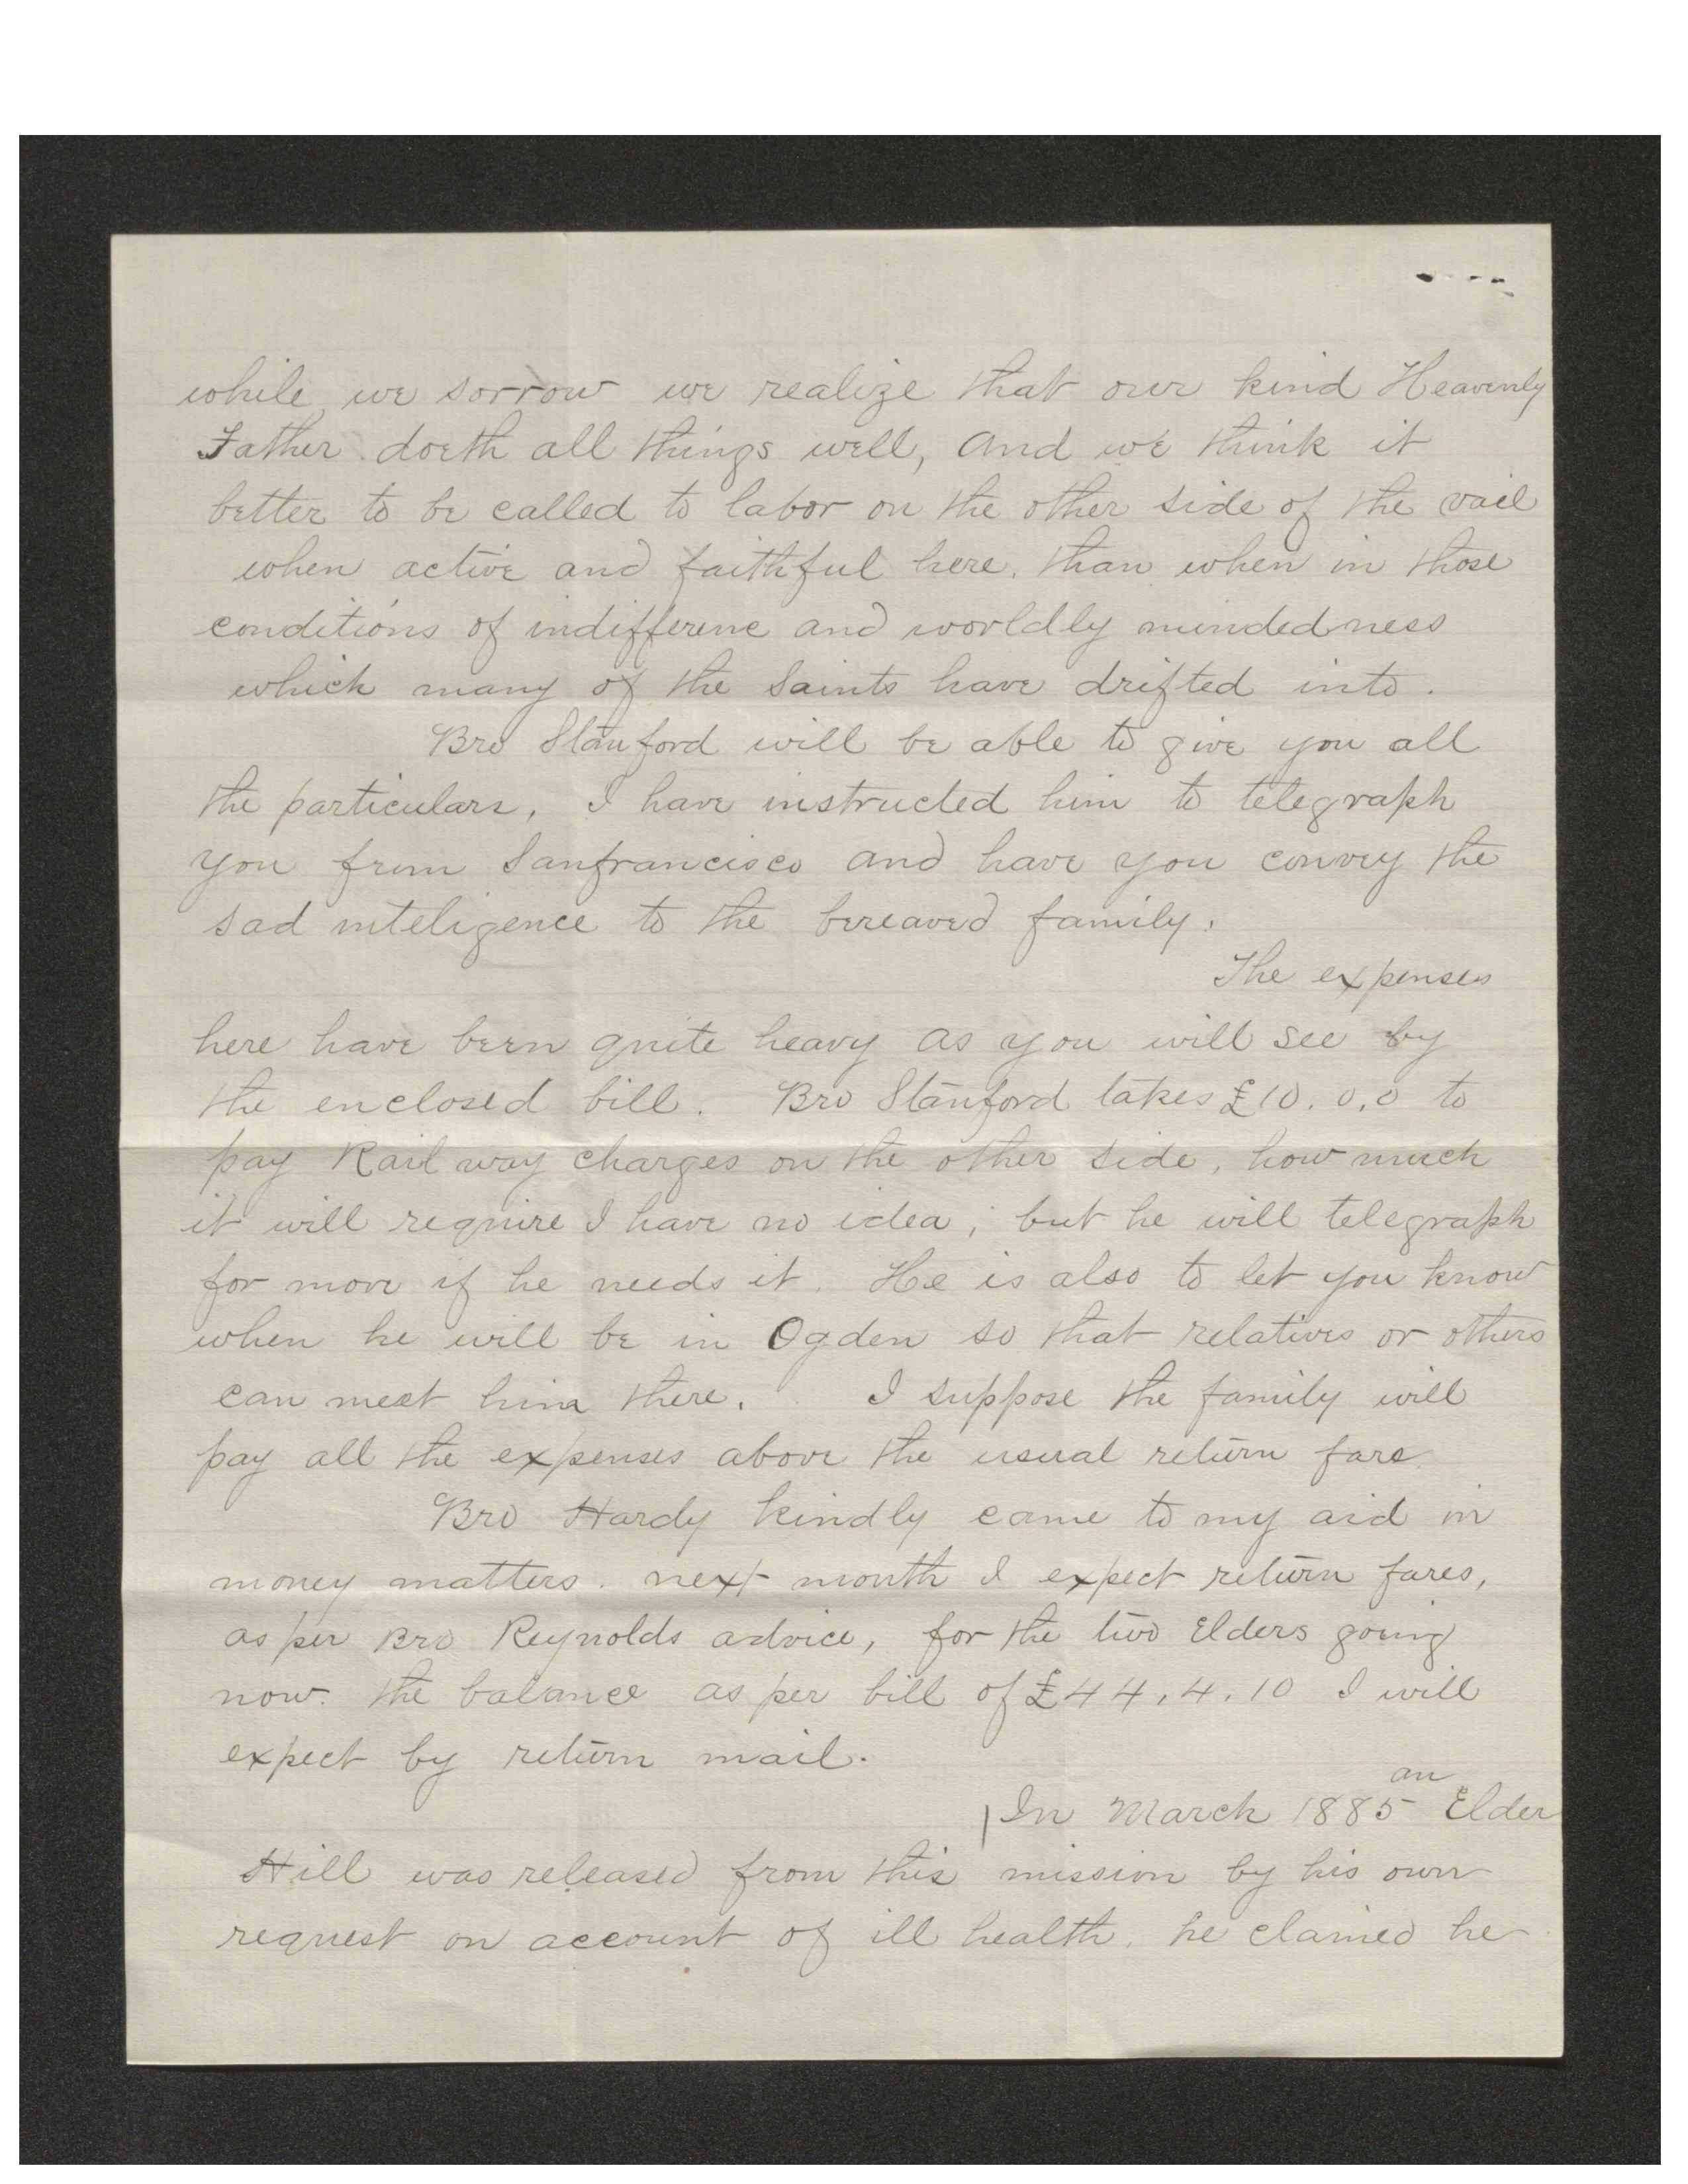 while we sorrow we realize that our kind Heavenly
Father doeth all things well, and we think it
better to be called to labor on the other side of the vail
when active and faithful here, than when in those
conditions of indifference and worldly mindedness
which many of the Saints have drifted into.
Bro Stanford will be able to give you all
the particulars, I have instructed him to telegraph
you from Sanfrancisco and have you convey the
sad inteligence to the bereaved family.
The expenses
here have been quite heavy as you will see by
the enclosed bill. Bro Stanford takes £10.0.0 to
pay Rail way charges on the other side, how much
it will require I have no idea; but he will telegraph
for more if he needs it. He is also to let you know
when he will be in Ogden so that relatives or others
can meet him there. I suppose the family will
pay all the expenses above the usual return fare.
Bro Hardy kindly came to my aid in
money matters. next month I expect return fares,
as per Bro Reynolds advice, for the two Elders going
now. the balance as per bill of £44.4.10 I will
expect by return mail.
an
In March 1885 Elder
Hill was released from this mission by his own
request on account of ill health. he claimed he